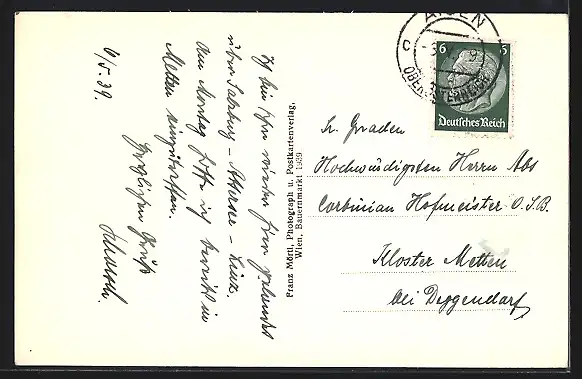 6/5.39.
Ich bin schon wieder hier gelandet
über Salzburg – Attersee – Linz.
Am Montag hoffe ich bereits in
Metten einzutreffen.
Herzlichen Gruß
Franz Mörtl, Photograph u. Postkartenverlag,
Wien, Bauernmarkt 1939
AIGEN
6 5
Deutsches Reich
Sr. Gnaden
Hochwürdigsten Herrn Abt
Corbinian Hofmeister O.S.B.
Kloster Metten
bei Deggendorf